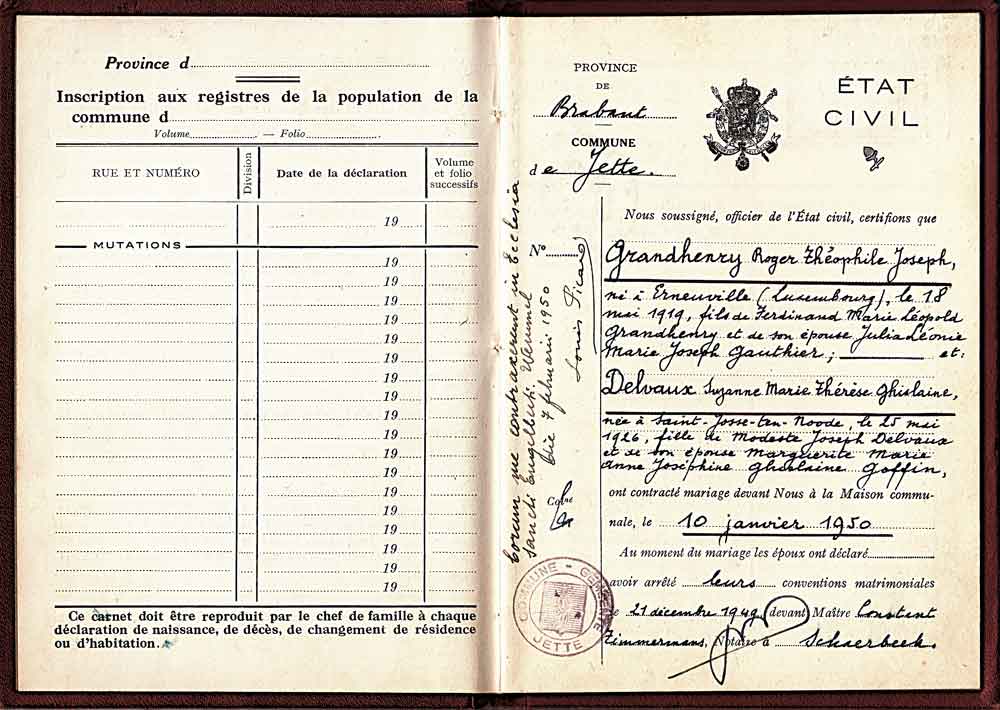 Province d
Inscription aux registres de la population de la
commune d
Volume — Folio
RUE ET NUMÉRO
Division
Date de la déclaration
Volume
et folio
successifs
19
MUTATIONS
19
19
19
19
19
19
19
19
19
19
19
19
19
19
19
19
19
19
Ce carnet doit être reproduit par le chef de famille à chaque
déclaration de naissance, de décès, de changement de résidence
ou d'habitation.
Coram me contraxerunt in Ecclesia
sancti Engelberti Wemmel
die 7 februarii 1950
Louis Picard
PROVINCE
DE
Brabant
COMMUNE
de Jette.
ÉTAT
CIVIL
Nº
Nous soussigné, officier de l'État civil, certifions que
Grandhenry Roger Théophile Joseph,
né à Erneuville (Luxembourg), le 18
mai 1919, fils de Ferdinand Marie Léopold
Grandhenry et de son épouse Julia Léonie
Marie Joseph Gauthier; et:
Delvaux Suzanne Marie Thérèse Ghislaine,
née à Saint-Josse-ten-Noode, le 25 mai
1926, fille de Modeste Joseph Delvaux
et de son épouse Marguerite Marie
Anne Joséphine Ghislaine Goffin,
ont contracté mariage devant Nous à la Maison commu-
nale, le 10 janvier 1950
Au moment du mariage les époux ont déclaré
avoir arrêté leurs conventions matrimoniales
le 21 décembre 1949 devant Maître Constant
Zimmermans, Notaire à Schaerbeek.
COMMUNE
JETTE